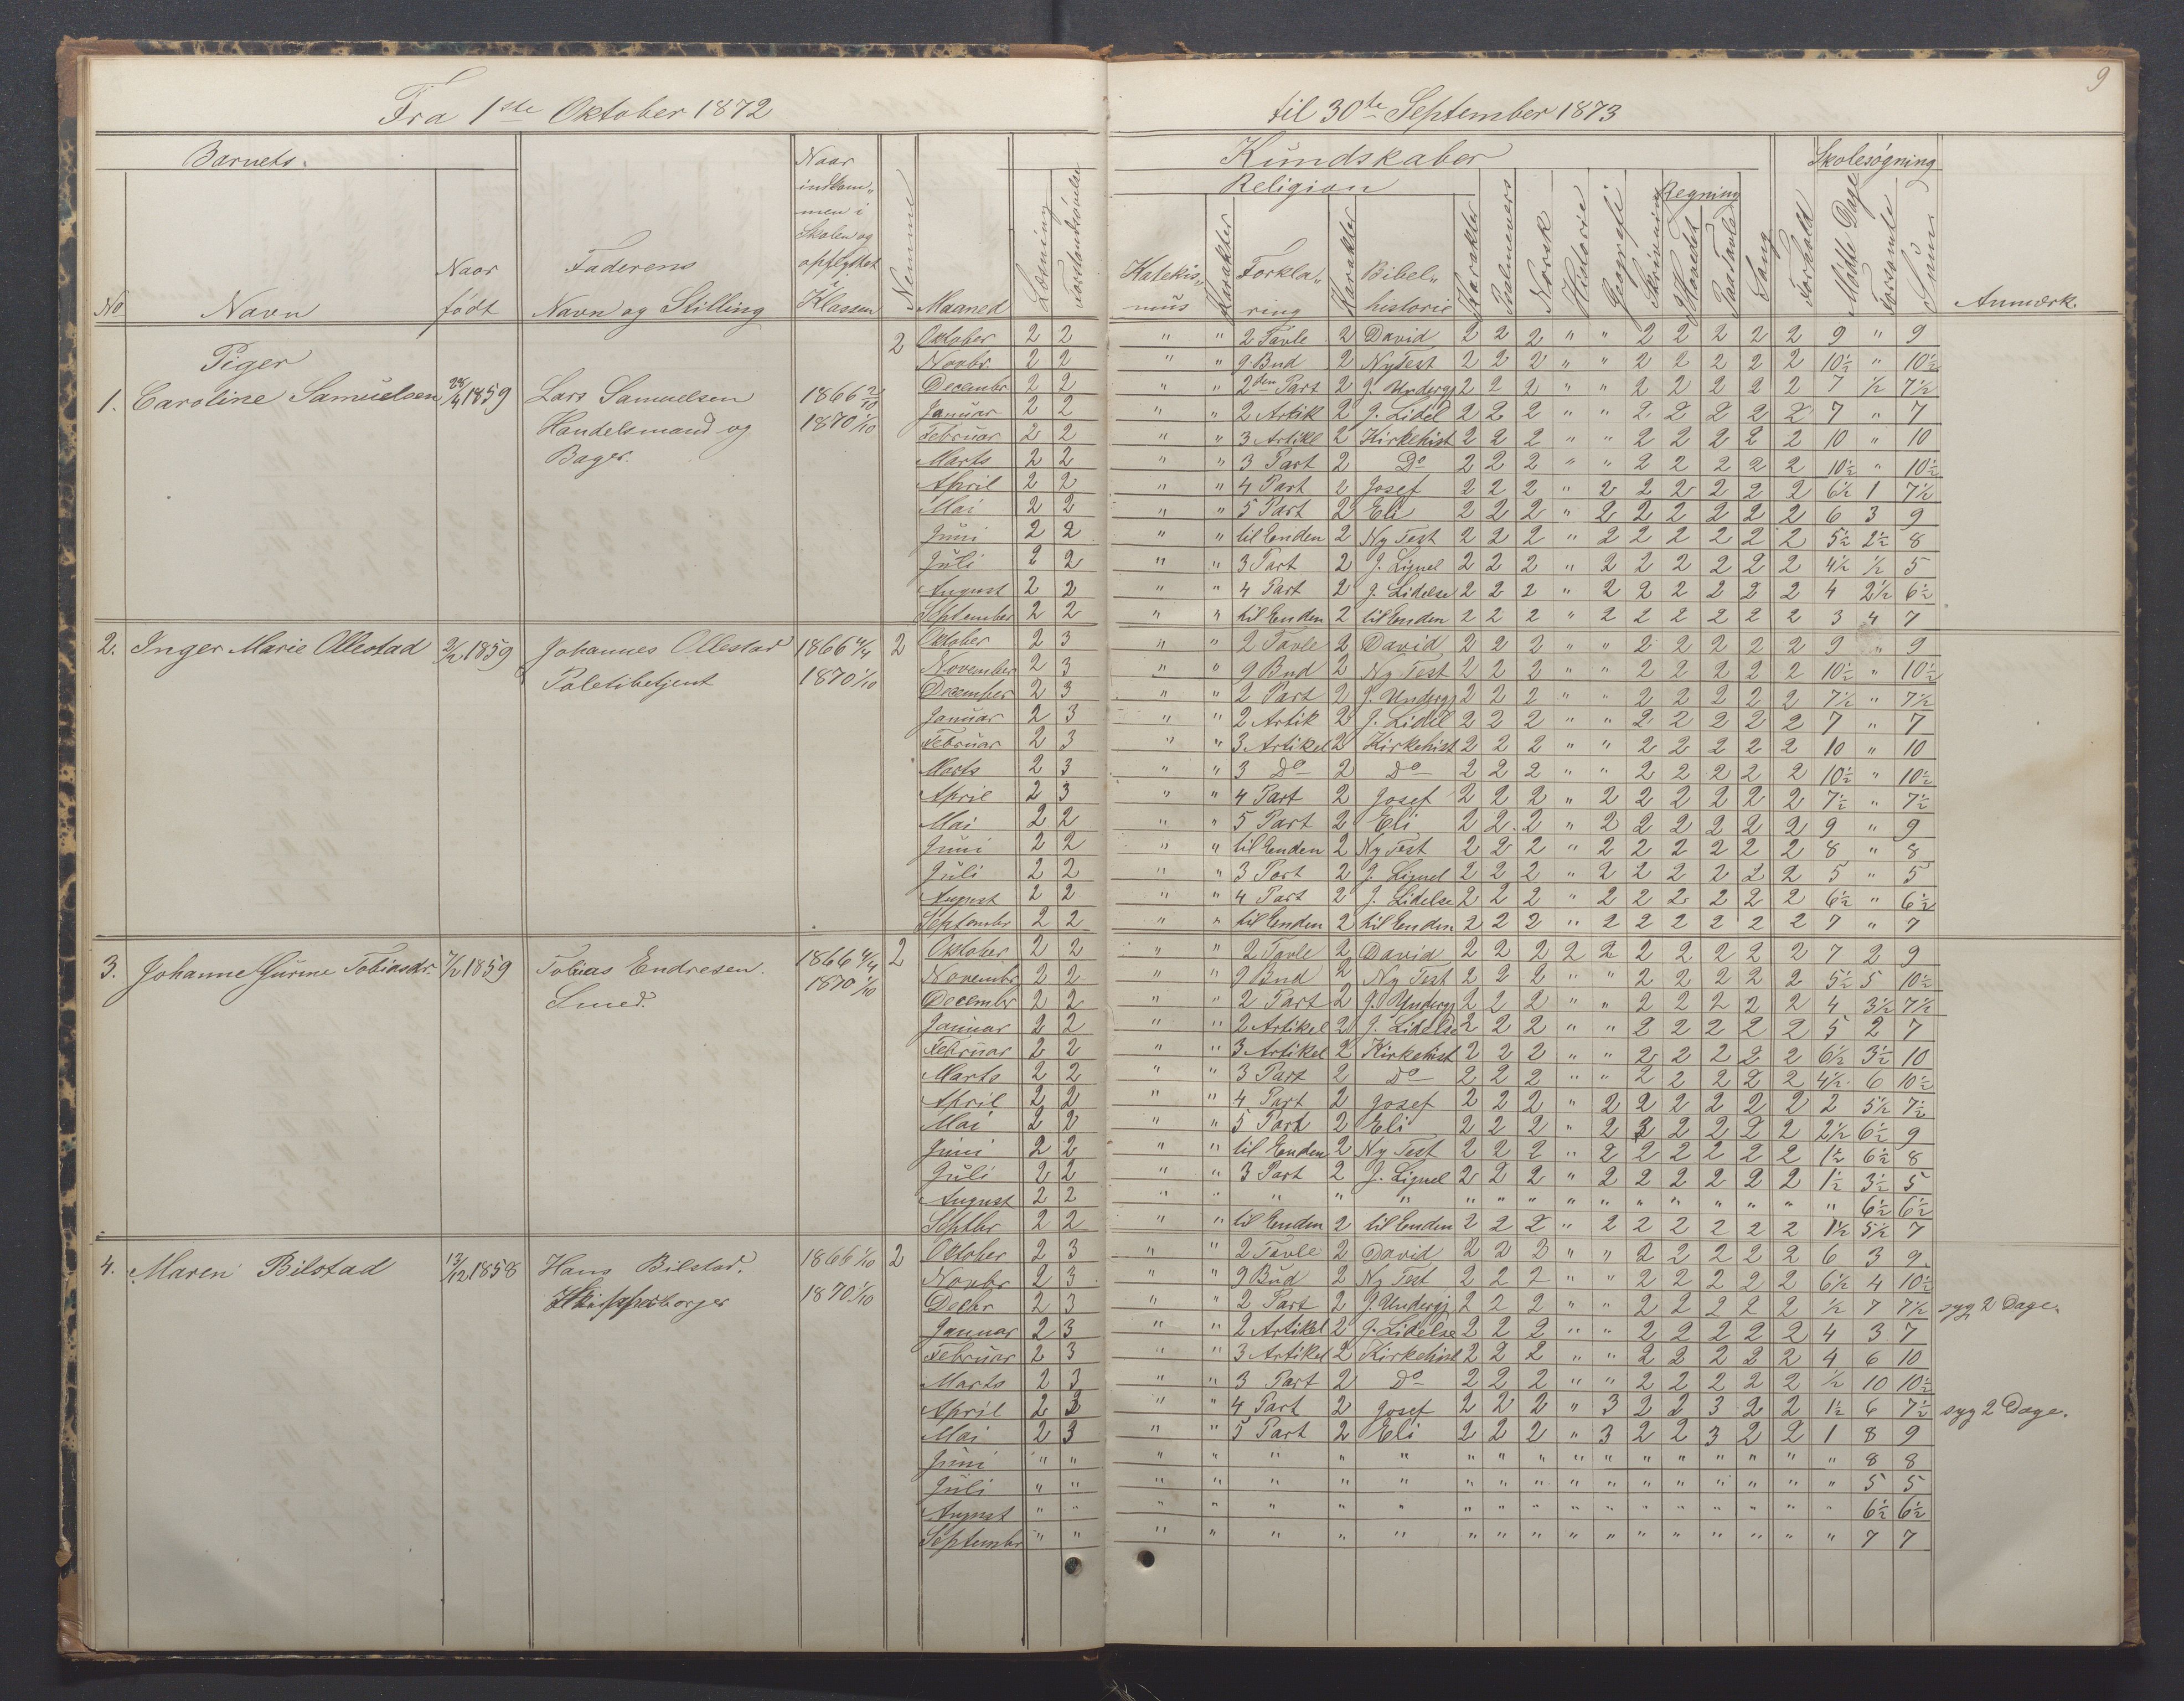 9
Fra 1ste Oktober 1872 til 30te September 1873
Barnets. Naar indkom„ men i Skolen og opflyttet i Klassen Kundskaber Skolesøgning
Religion Regning
No Navn Naar født Faderens Navn og Stilling Nemme Maaned Læsning Forstandsøvelse Katekis„ mus Karakter Forkla„ ring Karakter Bibel„ historie Karakter Psalmevers Norsk Historie Geografi Skrivning Hovedet Paa Tavle Sang Forhold Mødte Dage Forsømte Sum Anmærk.
Piger
1. Caroline Samuelsen 28/4 1859 Lars Samuelsen Handelsmand og Bager. 1866 2/10 1870 1/10 2
Oktober 2 2 " " 2 Tavle 2 David 2 2 2 " " 2 2 2 2 2 9 " 9
Novbr. 2 2 " " 9 Bud 2 Ny Test 2 2 2 " " 2 2 2 2 2 10½ " 10½
Decembr 2 2 " " 2den Part 2 J. Undergj 2 2 2 " " 2 2 2 2 2 7 ½ 7½
Januar 2 2 " " 2 Artik 2 J. Lidel 2 2 2 " " 2 2 2 2 2 7 " 7
Februar 2 2 " " 3 Artikl 2 Kirkehist 2 2 2 " " 2 2 2 2 2 10 " 10
Marts 2 2 " " 3 Part 2 Do 2 2 2 " " 2 2 2 2 2 10½ " 10½
April 2 2 " " 4 Part 2 Josef 2 2 2 " 2 2 2 2 2 2 6½ 1 7½
Mai 2 2 " " 5 Part 2 Eli 2 2 2 " 2 2 2 2 2 2 6 3 9
Juni 2 2 " " til Enden 2 Ny Test 2 2 2 " 2 2 2 2 2 2 5½ 2½ 8
Juli 2 2 " " 3 Part 2 J. Lignel 2 2 2 " 2 2 2 2 2 2 4½ ½ 5
August 2 2 " " 4 Part 2 J. Lidelse 2 2 2 " 2 2 2 2 2 2 4 2½ 6½
September 2 2 " " til Enden 2 til Enden 2 2 2 " 2 2 2 2 2 2 3 4 7
2. Inger Marie Ollestad 2/2 1859 Johannes Ollestad Poletibetjent 1866 4/4 1870 1/10 2
Oktober 2 3 " " 2 Tavle 2 David 2 2 2 " " 2 2 2 2 2 9 " 9
November 2 3 " " 9 Bud 2 Ny Test 2 2 2 " " 2 2 2 2 2 10½ " 10½
December 2 3 " " 2 Part 2 J. Undergj 2 2 2 " " 2 2 2 2 2 7½ " 7½
Januar 2 3 " " 2 Artik 2 J. Lidel 2 2 2 " " 2 2 2 2 2 7 " 7
Februar 2 3 " " 3 Artikel 2 Kirkehist 2 2 2 " " 2 2 2 2 2 10 " 10
Marts 2 3 " " 3 Do 2 Do 2 2 2 " " 2 2 2 2 2 10½ " 10½
April 2 3 " " 4 Part 2 Josef 2 2 2 " 2 2 2 2 2 2 7½ " 7½
Mai 2 2 " " 5 Part 2 Eli 2 2 2 " 2 2 2 2 2 2 9 " 9
Juni 2 2 " " til Enden 2 Ny Test 2 2 2 " 2 2 2 2 2 2 8 " 8
Juli 2 2 " " 3 Part 2 J. Lignel 2 2 2 " 2 2 2 2 2 2 5 " 5
August 2 2 " " 4 Part 2 J. Lidelse 2 2 2 " 2 2 2 2 2 2 6½ " 6½
Septembr 2 2 " " til Enden 2 til Enden 2 2 2 " 2 2 2 2 2 2 7 " 7
3. Johanne Gurine Tobiasdr. 7/2 1859 Tobias Endresen. Smed. 1866 4/4 1870 1/10 2
Oktober 2 2 " " 2 Tavle 2 David 2 2 2 2 2 2 2 2 2 2 7 2 9
Novembr 2 2 " " 9 Bud 2 Ny Test 2 2 2 " " 2 2 2 2 2 5½ 5 10½
Decembr 2 2 " " 2 Part 2 J. Undergj 2 2 2 " " 2 2 2 2 2 4 3½ 7½
Januar 2 2 " " 2 Artikel 2 J. Lidelse 2 2 2 " " 2 2 2 2 2 5 2 7
Februar 2 2 " " 3 Artikel 2 Kirkehist 2 2 2 " " 2 2 2 2 2 6½ 3½ 10
Marts 2 2 " " 3 Part 2 Do 2 2 2 " " 2 2 2 2 2 4½ 6 10½
April 2 2 " " 4 Part 2 Josef 2 2 2 " 2 2 2 2 2 2 2 5½ 7½
Mai 2 2 " " 5 Part 2 Eli 2 2 2 " 2 2 2 2 2 2 2½ 6½ 9
Juni 2 2 " " til Enden 2 Ny Test 2 2 2 " 2 2 2 2 2 2 1½ 6½ 8
Juli 2 2 " " 3 Part 2 J. Lignel 2 2 2 " 2 2 2 2 2 2 1½ 3½ 5
August 2 2 " " " " " " " " " " " " " " " " 6½ 6½
Septbr 2 2 " " til Enden 2 til Enden 2 2 2 " 2 2 2 2 2 2 1½ 5½ 7
4. Maren Bilstad 13/12 1858 Hans Bilstad. Skipperborger 1866 1/10 1870 1/10 2
Oktober 2 3 " " 2 Tavle 2 David 2 2 2 " " 2 2 2 2 2 6 3 9
Novbr 2 3 " " 9 Bud 2 Ny Test 2 2 2 " " 2 2 2 2 2 6½ 4 10½
Decbr 2 3 " " 2 Part 2 J. Undergj 2 2 2 " " 2 2 2 2 2 ½ 7 7½ syg 2 Dage.
Januar 2 3 " " 2 Artikel 2 J. Lidelse 2 2 2 " " 2 2 2 2 2 4 3 7
Februar 2 3 " " 3 Artikel 2 Kirkehist 2 2 2 " " 2 2 2 2 2 4 6 10
Marts 2 3 " " 3 Part 2 Do 2 2 2 " " 2 2 2 2 2 ½ 10 10½
April 2 3 " " 4 Part 2 Josef 2 2 2 " 3 2 2 3 2 2 1½ 6 7½ syg 2 Dage.
Mai 2 3 " " 5 Part 2 Eli 2 2 2 " 3 2 2 3 2 2 1 8 9
Juni " " " " " " " " " " " " " " " " " " " 8 8
Juli " " " " " " " " " " " " " " " " " " " 5 5
August " " " " " " " " " " " " " " " " " " " 6½ 6½
Septembr " " " " " " " " " " " " " " " " " " " 7 7